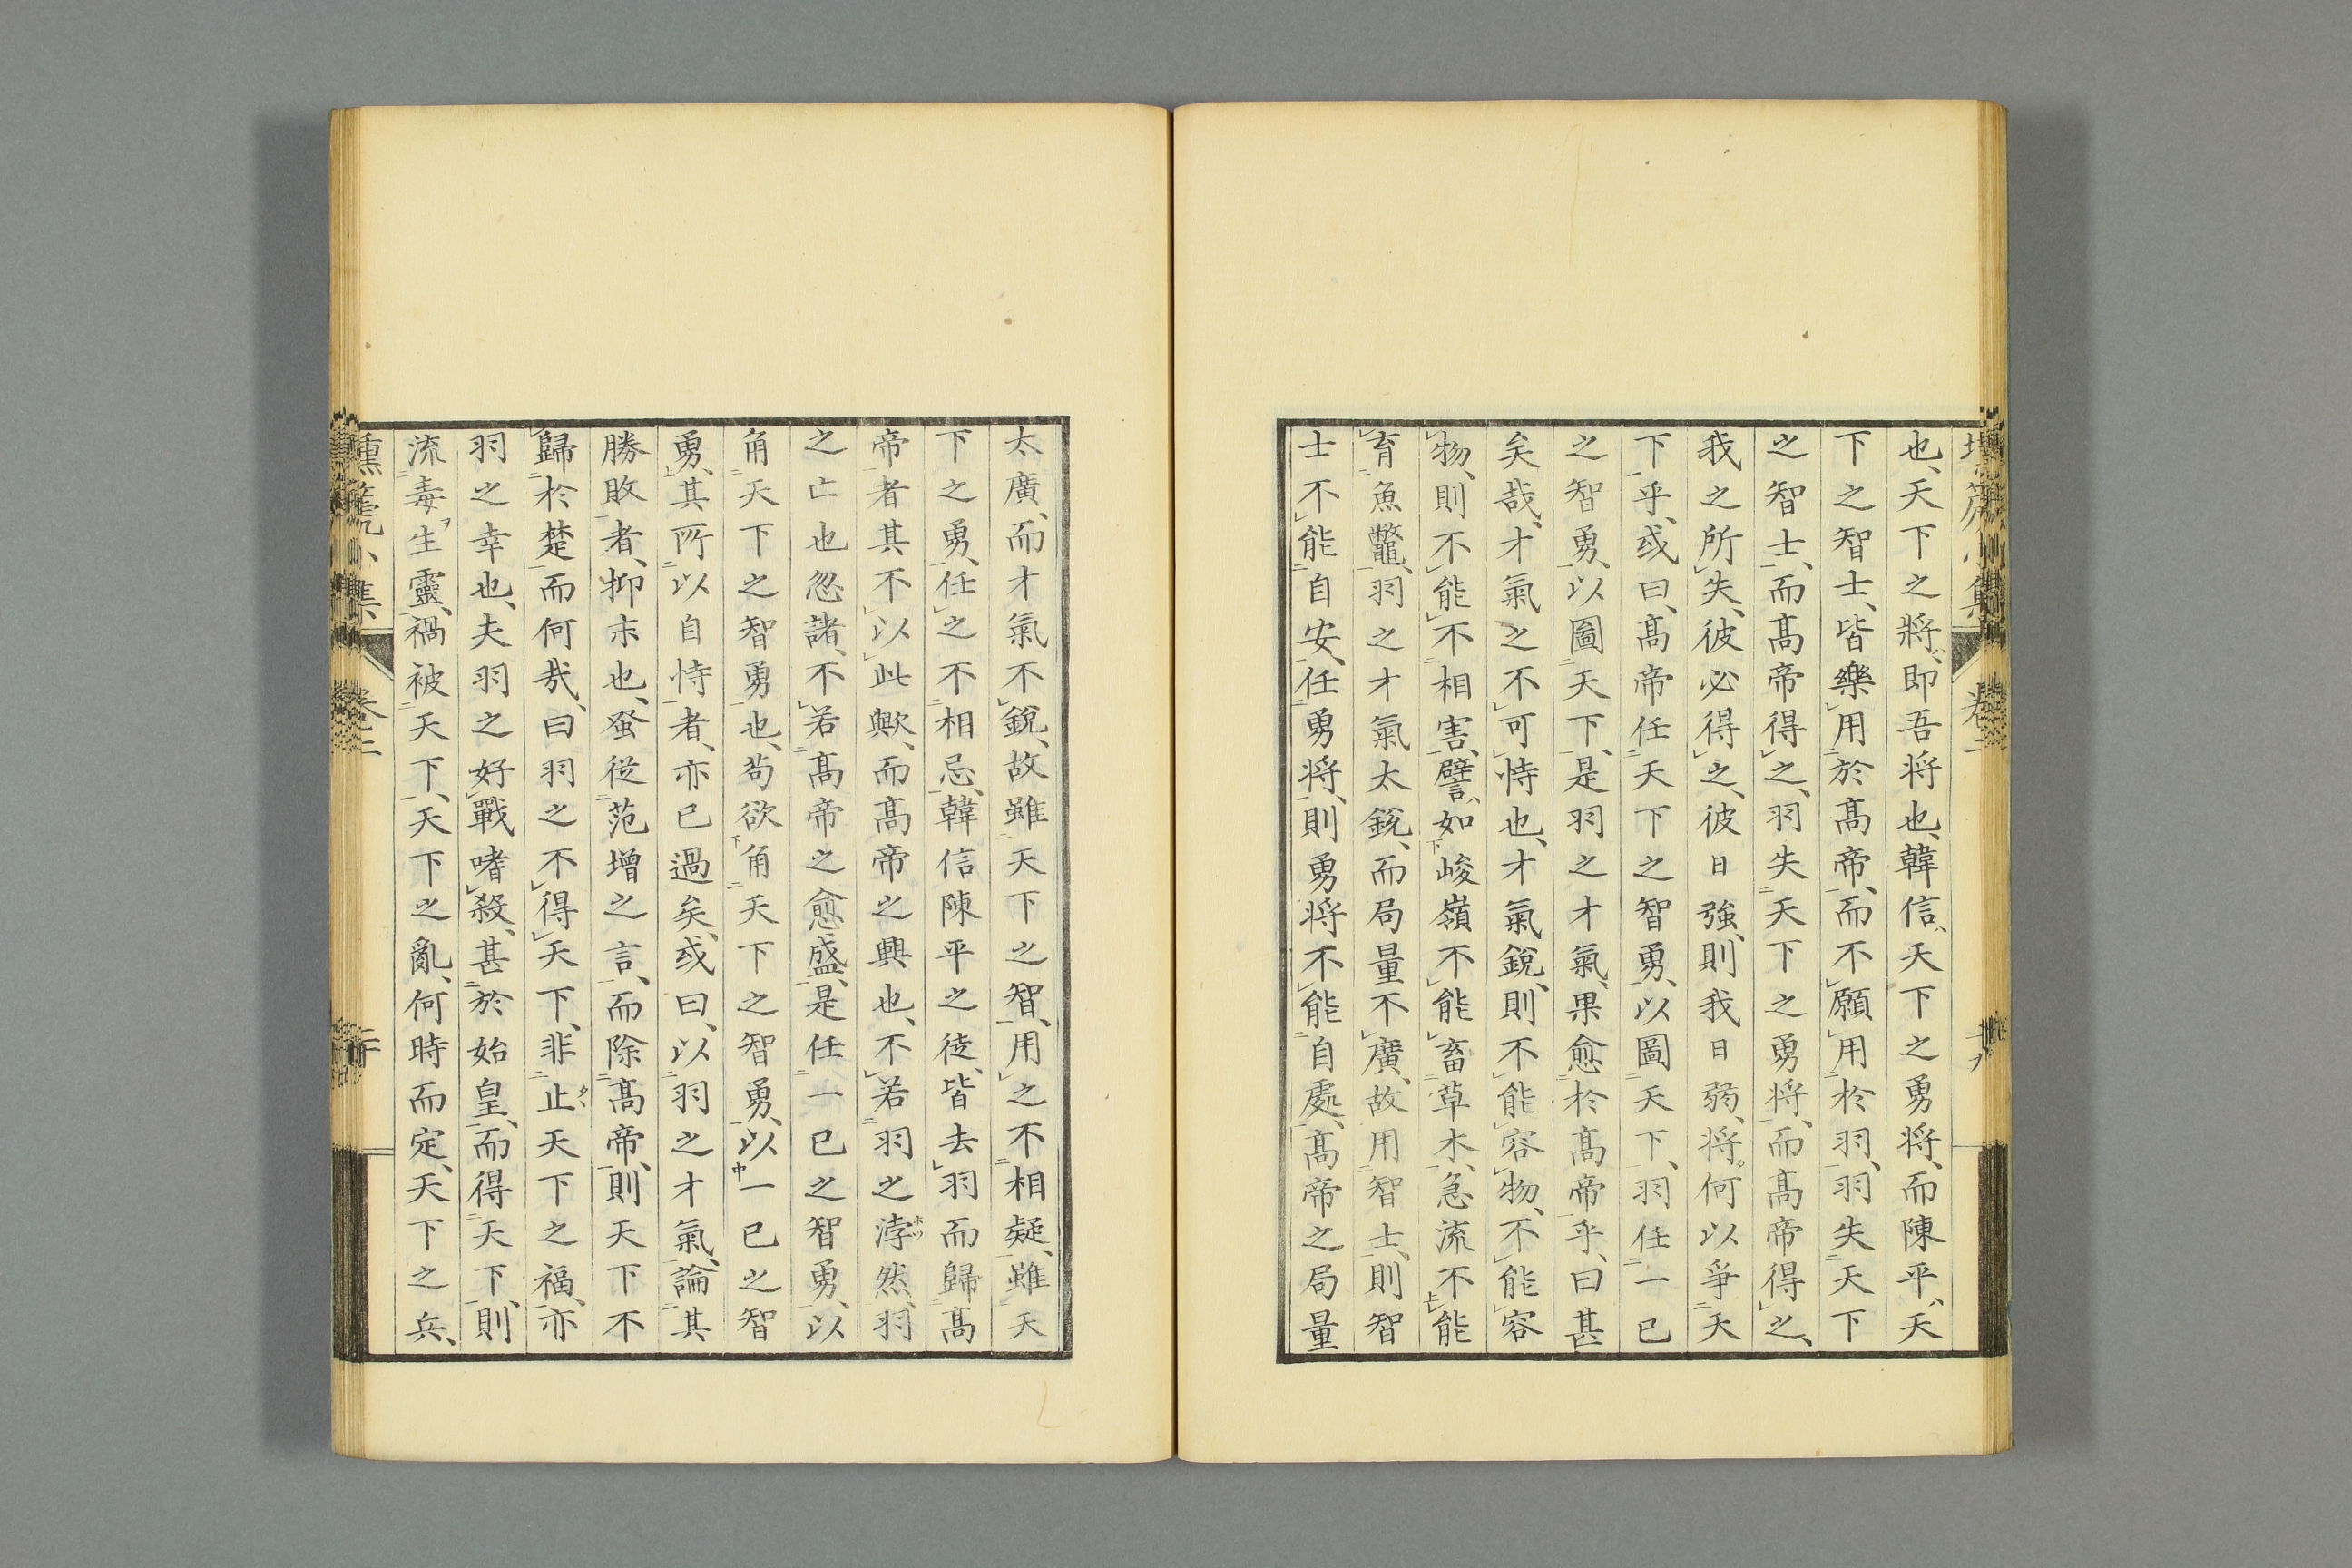 也、天下之將、即吾将也、韓信、天下之勇将、而陳平、天
下之智士、皆樂用於髙帝、而不願用於羽、羽失天下
之智士、而髙帝得之、羽失天下之勇将、而髙帝得之、
我之所失、彼必得之、彼日強、則我日弱、将何以爭天
下乎、或曰、髙帝任天下之智勇、以圖天下、羽任一已
之智勇、以圖天下、是羽之才氣、果愈於髙帝乎、曰甚
矣哉、才氣之不可恃也、才氣銳、則不能容物、不能容
物、則不能不相害、譬如峻嶺不能畜草木、急流不能
育魚鼈、羽之才氣太銳、而局量不廣、故用智士、則智
士不能自安、任勇将、則勇将不能自處、髙帝之局量
太廣、而才氣不銳、故雖天下之智、用之不相疑、雖天
下之勇、任之不相忌、韓信陳平之徒、皆去羽而歸髙
帝者其不以此歟、而髙帝之興也、不若羽之浡然、羽
之亡也忽諸、不若髙帝之愈盛、是任一已之智勇、以
角天下之智勇也、苟欲角天下之智勇、以一已之智
勇、其所以自恃者、亦已過矣、或曰、以羽之才氣、論其
勝敗者、抑末也、蛋從范增之言、而除髙帝、則天下不
歸於楚、而何㦲、曰羽之不得天下、非止天下之福、亦
羽之幸也、夫羽之好戰嗜殺、甚於始皇、而得天下、則
流毒生靈、禍被天下、天下之亂、何時而定、天下之兵、